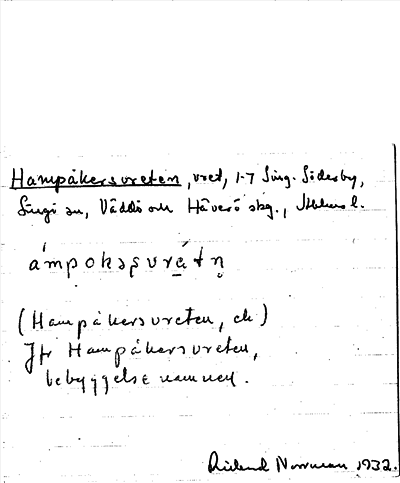 Hampåkersvreten, vret, 1-7 Sing. Söderby,
Singö sn, Väddö och Häverö skg., Sthlms l.
ámpokəʂvrèt n̥
(Hampåkersvreten, ek)
Jfr Hampåkersvreten,
bebyggelsenamnen.
Rickard Norrman 1932.